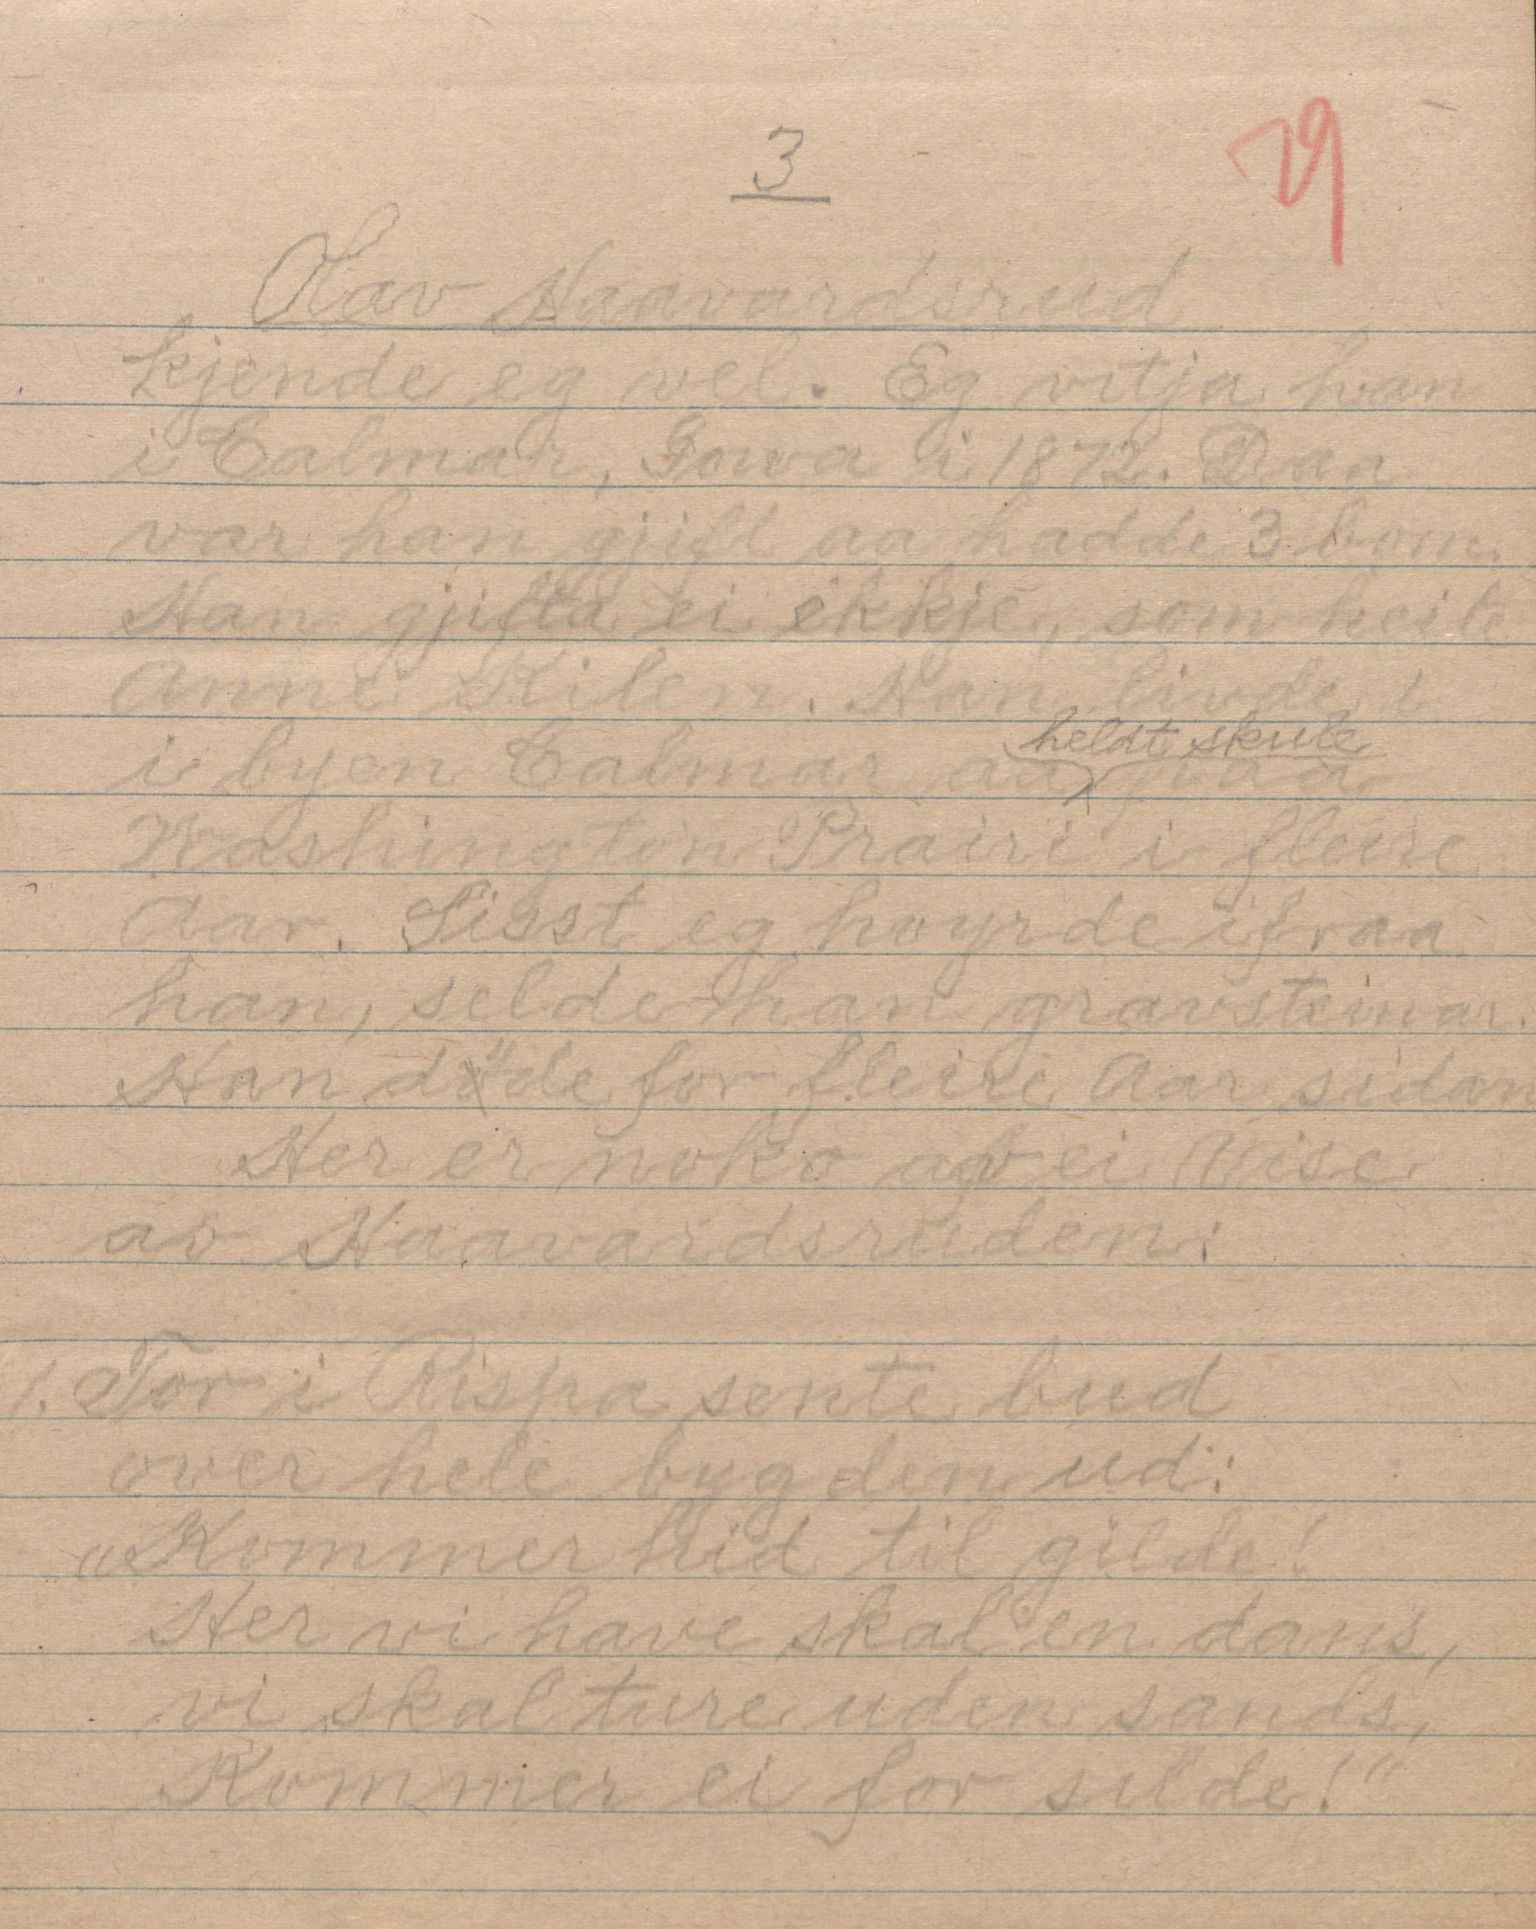 3
79
Olav Haavardsrud
kjende eg vel. Eg vitja han
i Calmar, Iowa i 1872. Daa
var han gjift aa hadde 3 born.
Han gjifta ei ekkje, som heite
Anne Kilen. Han livde i
i byen Calmar aa heldt skule paa
Washington Prairi i fleire
Aar. Sisst eg høyrde ifraa
han, selde han gravsteinar.
Han döde for fleire Aar sidan
Her er noko av ei Vise
av Haavardsruden:
1. Tor i Rispa sente bud
over hele bygden ud:
"Kommer hid til gilde!
Her vi have skal en dans,
vi skal ture uden sands,
Kommer ei for silde!"